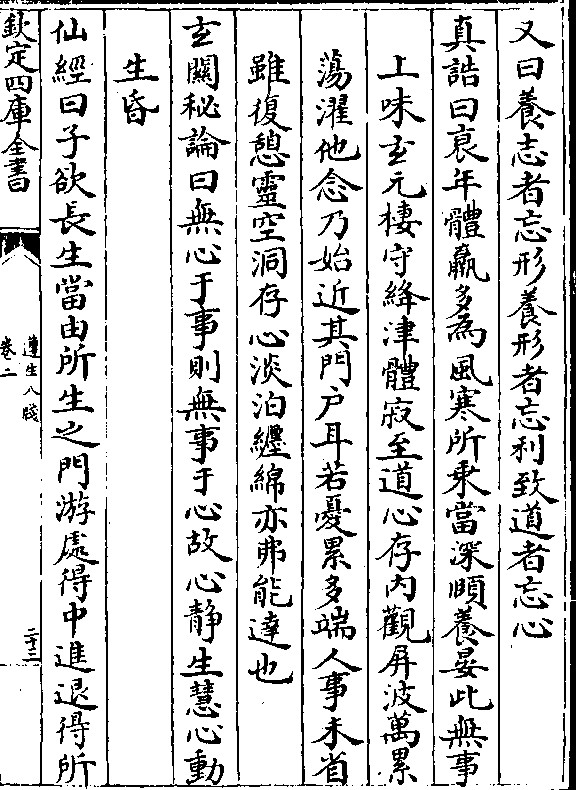 又曰養志者忘形養形者忘利致道者忘心
真誥曰衰年體羸多為風寒所乘當深頤養晏此無事
上味玄元棲守絳津體寂至道心存內觀屏波萬累
蕩濯他念乃始近其門户耳若憂累多端人事未省
雖復憩靈空洞存心淡泊纏綿亦弗能達也
玄關秘論曰無心于事則無事于心故心静生慧心動
生昏
仙經曰子欲長生當由所生之門游處得中進退得所
欽定四庫全書
遵生八牋
卷二
二十三